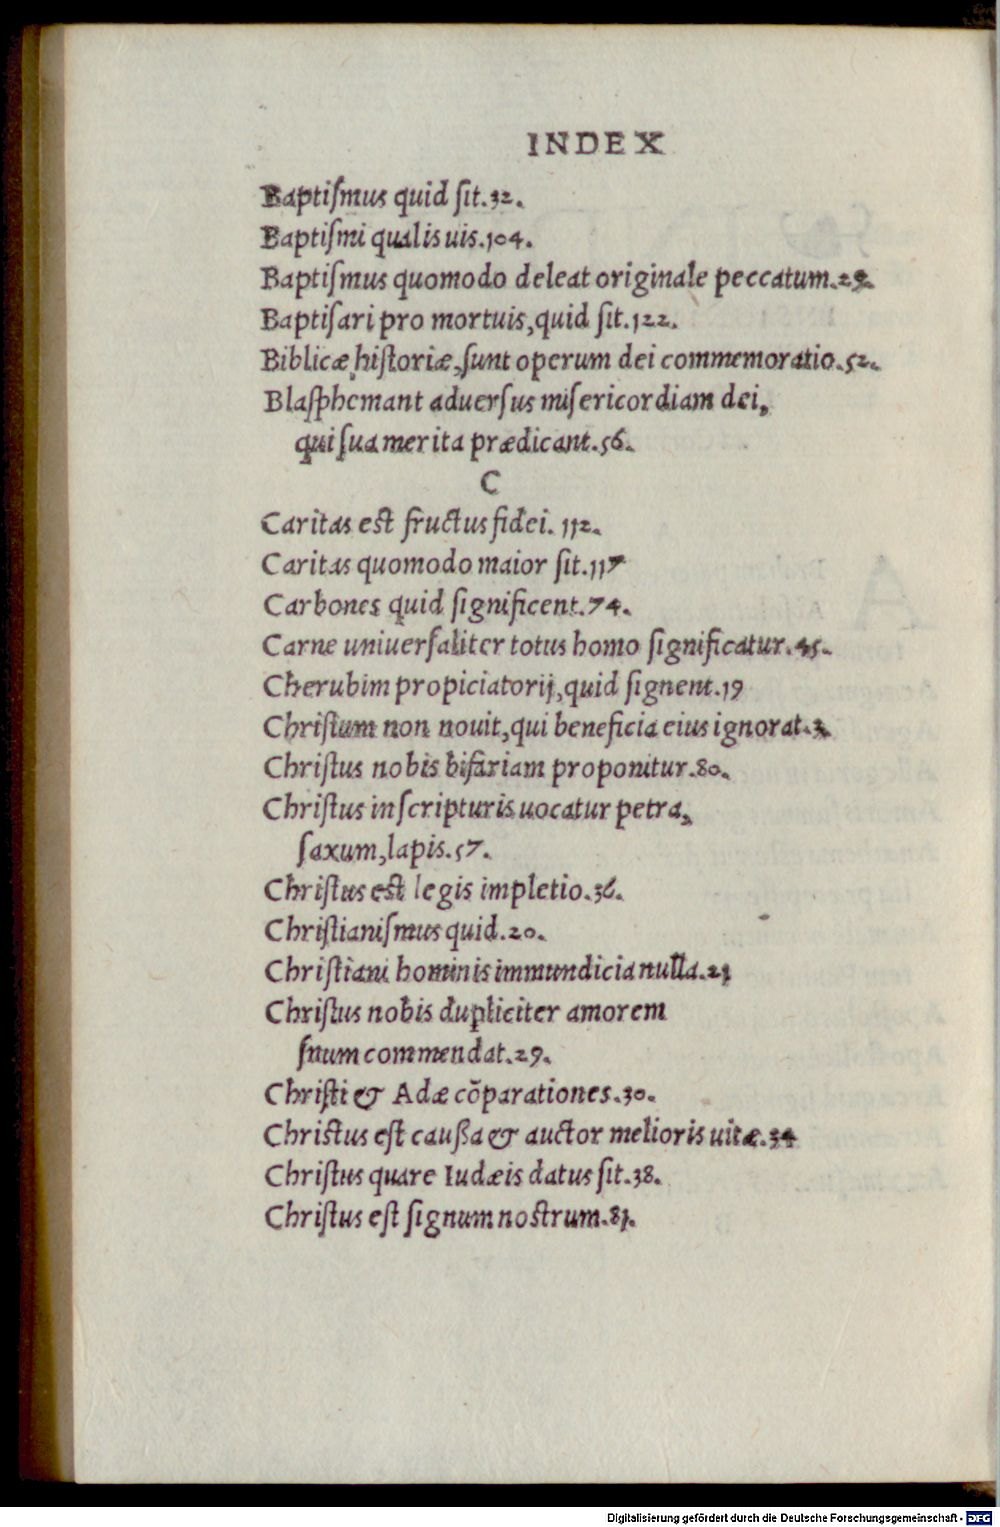 INDEX
Baptiſmus quid ſit.32.
Baptiſmi qualis uis.104.
Baptiſmus quomodo deleat originale peccatum.29.
Baptiſari pro mortuis,quid ſit.122.
Biblicæ hiſtoriæ,ſunt operum dei commemoratio.52.
Blaſphemant aduerſus miſericordiam dei,
qui ſua merita prædicant.56.
C
Caritas est fructus fidei. 112.
Caritas quomodo maior ſit.117
Carbones quid ſignificent.74.
Carne uniuerſaliter totus homo ſignificatur.45.
Cherubim propiciatorij,quid ſignent.19
Chriſtum non nouit,qui beneficia eius ignorat.3.
Chriſtus nobis bifariam proponitur.80.
Chriſtus in ſcripturis uocatur petra,
ſaxum,lapis.57.
Chriſtus est legis impletio.36.
Chriſtianiſmus quid.20.
Chriſtiani hominis immundicia nulla.21
Chriſtus nobis dupliciter amorem
ſuum commendat.29.
Chriſti & Adæ cõparationes.30.
Christus eſt cauſſa & auctor melioris uitæ.34
Chriſtus quare Iudæis datus ſit.38.
Chriſtus eſt ſignum nostrum.81.
Digitalisierung gefördert durch die Deutsche Forschungsgemeinschaft - DFG